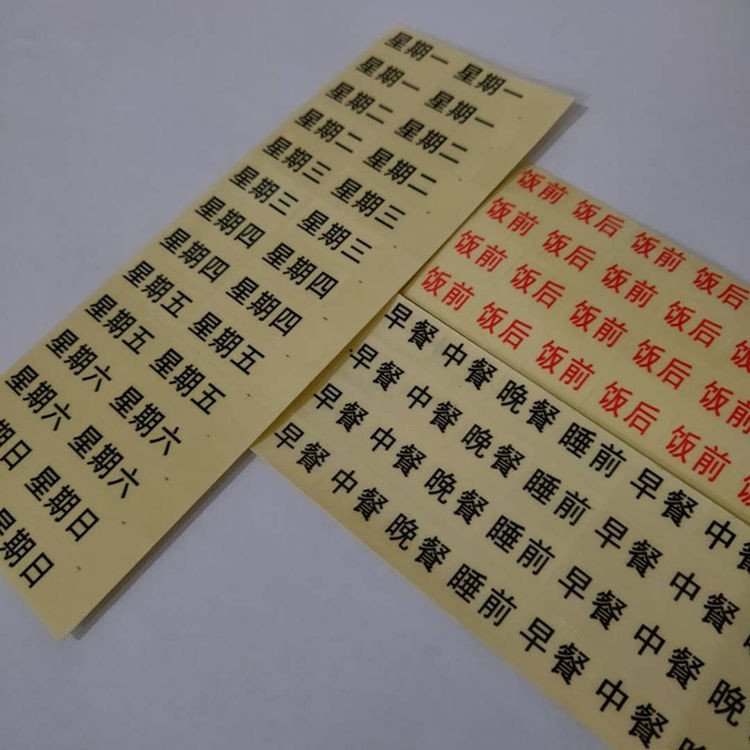 星期一 星期一
星期一 星期一
星期二 星期二
星期二 星期二
星期三 星期三
星期三 星期三
星期四 星期四
星期四 星期四
星期五 星期五
星期五 星期五
星期六 星期六
星期六 星期六
期日 星期日
星期日
饭前 饭后 饭前 饭后
饭前 饭后 饭前 饭后
饭前 饭后 饭前 饭后 饭前
饭前 饭后 饭前 饭后 饭前
早餐 中餐 晚餐 睡前 早餐 中餐
早餐 中餐 晚餐 睡前 早餐 中餐
早餐 中餐 晚餐 睡前 早餐 中餐 晚
早餐 中餐 晚餐 睡前 早餐 中餐